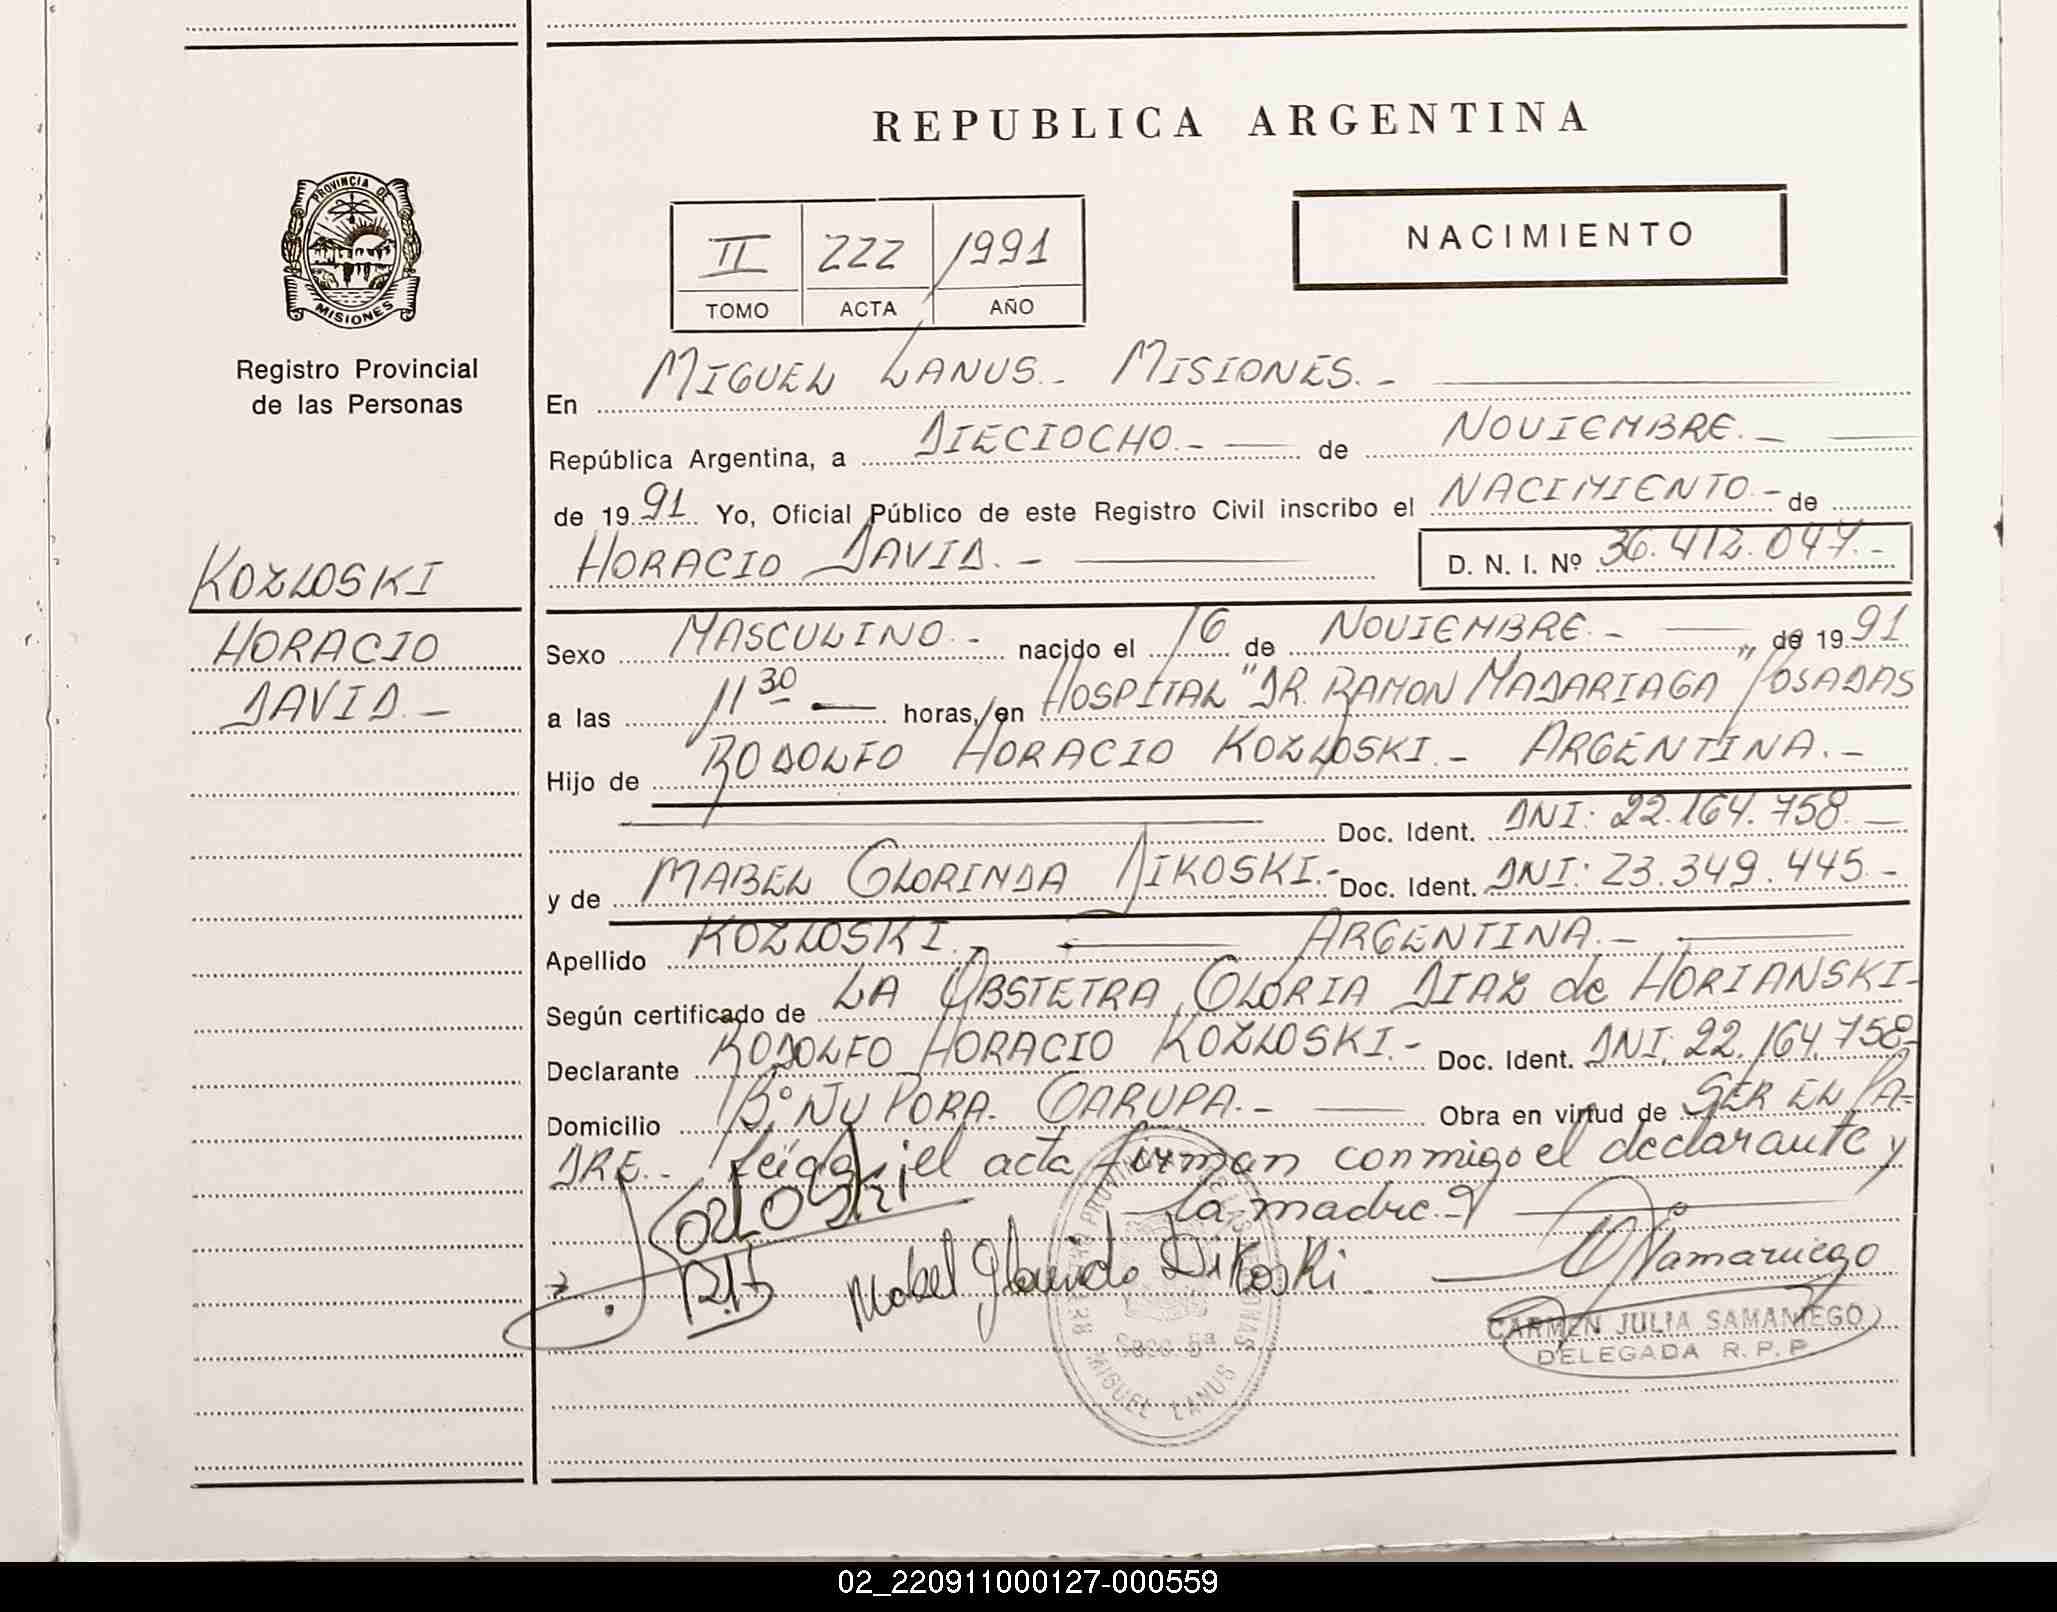 REPUBLICA ARGENTINA
PROVINCIA DE
MISIONES
Registro Provincial
de las Personas
KOZLOSKI
HORACIO
DAVID.-
II 222 1991
TOMO ACTA AÑO
NACIMIENTO
En MIGUEL LANUS.- MISIONES.-
República Argentina, a DIECIOCHO.- de NOVIEMBRE.-
de 1991 Yo, Oficial Público de este Registro Civil inscribo el NACIMIENTO.- de
HORACIO DAVID.- D. N. I. Nº 36.412.047.-
Sexo MASCULINO.- nacido el 16 de NOVIEMBRE.- de 1991
a las 11 30 horas, en HOSPITAL "DR. RAMON MADARIAGA" POSADAS
Hijo de RODOLFO HORACIO KOZLOSKI.- ARGENTINA.-
Doc. Ident. DNI: 22.164.758.
y de MABEL GLORINDA DIKOSKI.- Doc. Ident. DNI: 23.349.445.-
Apellido KOZLOSKI.- ARGENTINA.-
Según certificado de LA OBSTETRA GLORIA DIAZ de HORIANSKI-
Declarante RODOLFO HORACIO KOZLOSKI.- Doc. Ident. DNI: 22.164.758-
Domicilio Bº ÑU PORA. GARUPA.- Obra en virtud de SER EL PA=
DRE.- Leída el acta firman conmigo el declarante y
la madre.-
Kozloski
R.H
Mabel Glorinda Dikoski
Samaniego
CARMEN JULIA SAMANIEGO
DELEGADA R. P. P.
REGISTRO PROVINCIAL DE LAS PERSONAS
Secc. 5ª
MIGUEL LANUS
02_220911000127-000559